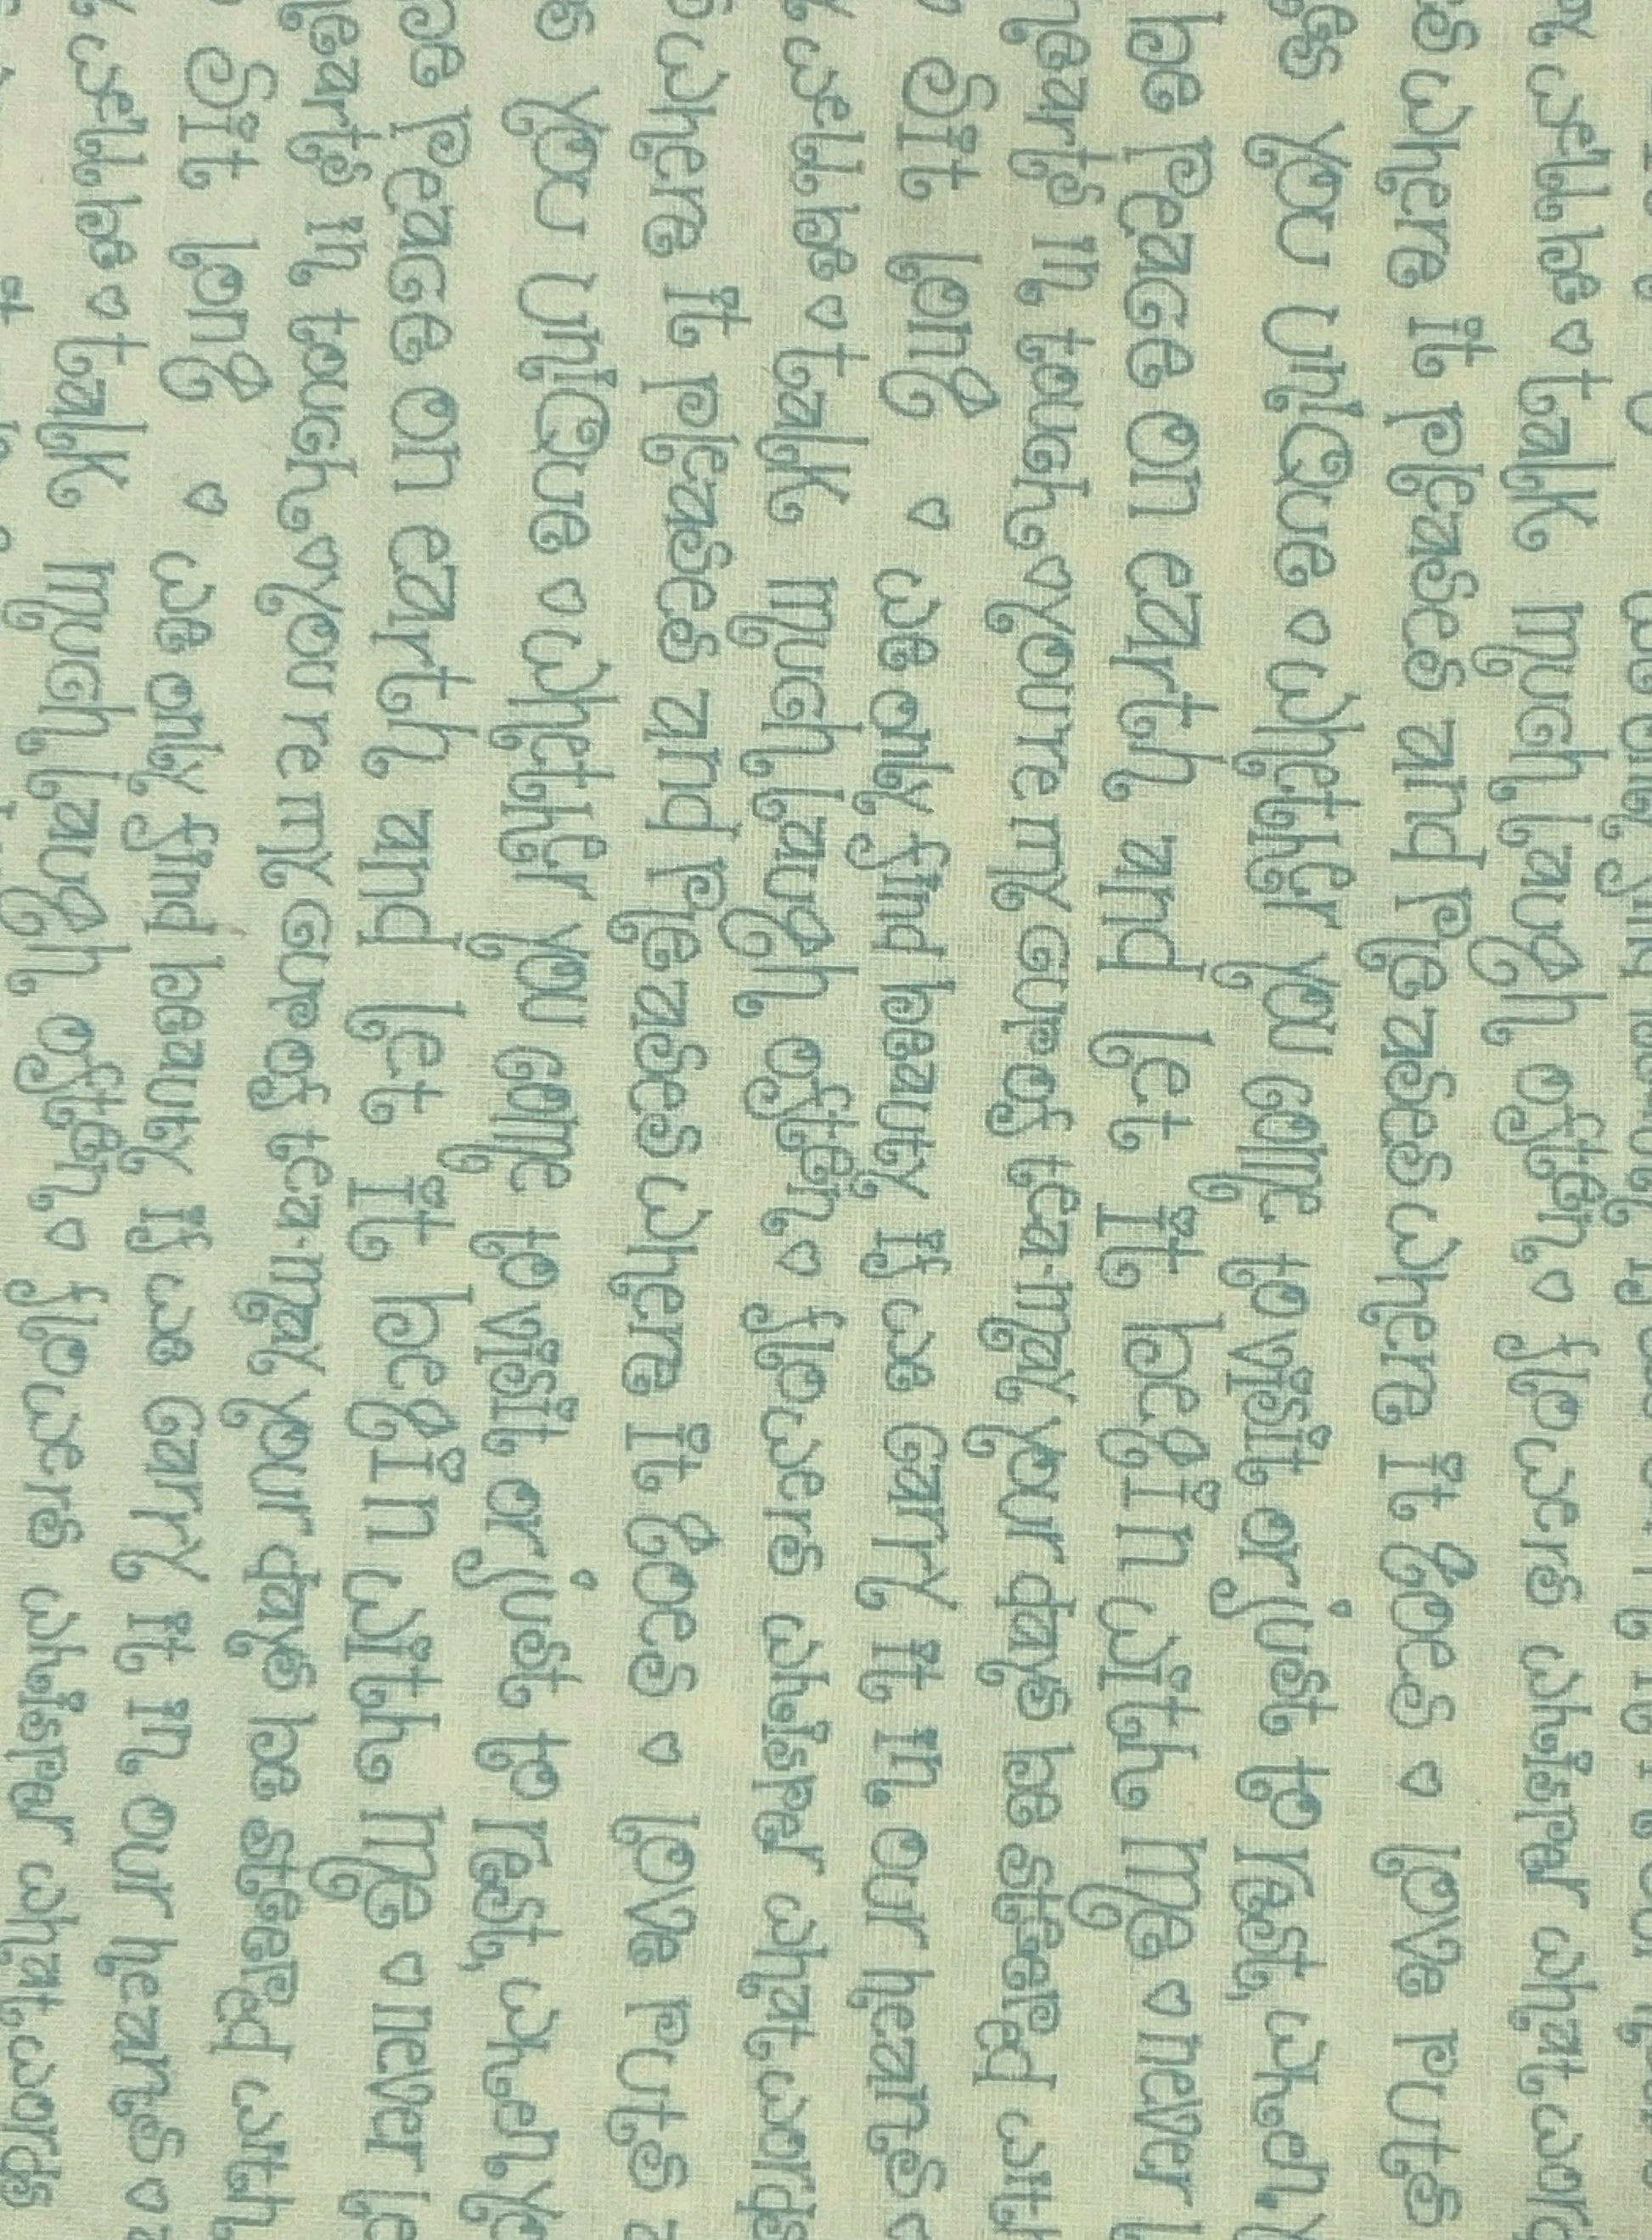 well be ♡ talk much laugh often ♡ flowers whisper what
where it pleases and pleases where it goes ♡ love puts
you unique ♡ whether you come to visit or just to rest, when
be peace on earth and let it begin with me ♡ never
hearts in touch ♡ you're my cup of tea · may your days be steeped with
sit long ♡ we only find beauty if we carry it in our hearts ♡
well be ♡ talk much laugh often ♡ flowers whisper what words
where it pleases and pleases where it goes ♡ love puts
you unique ♡ whether you come to visit or just to rest, when
peace on earth and let it begin with me ♡ never
hearts in touch ♡ you re my cup of tea · may your days be steeped with
sit long ♡ we only find beauty if we carry it in our hearts ♡
well be ♡ talk much laugh often ♡ flowers whisper what words